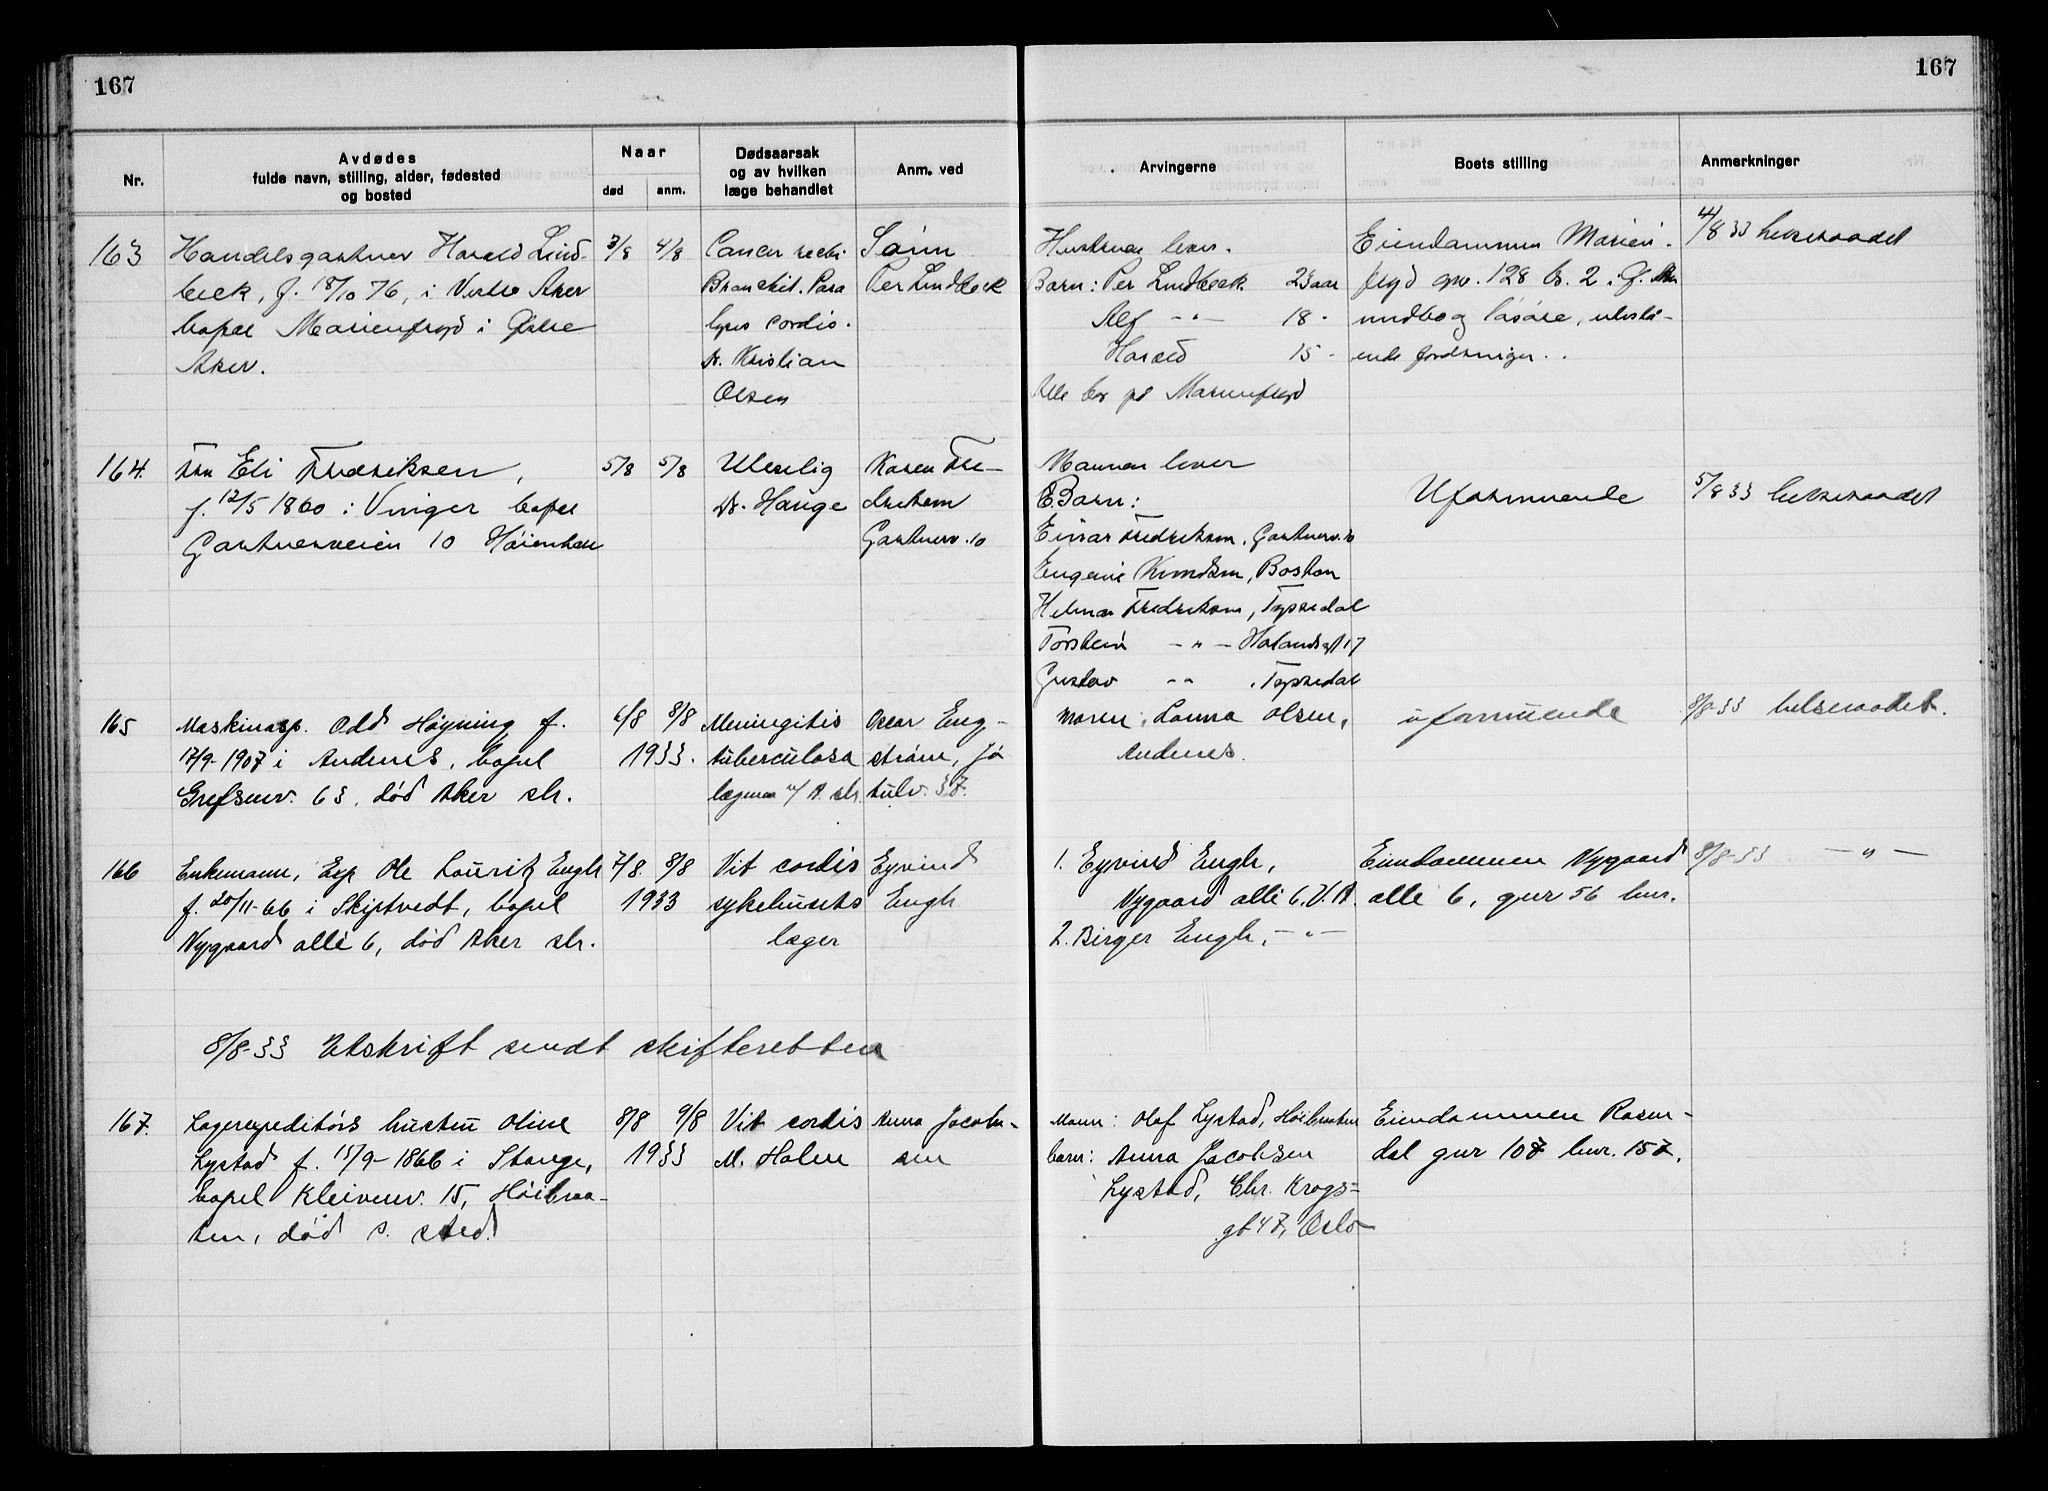 167
167
Nr.
Avdødes
fulde navn, stilling, alder, fødested
og bosted
Naar
død
anm.
Dødsaarsak
og av hvilken
læge behandlet
Anm. ved
Arvingerne
Boets stilling
Anmerkninger
163
Handelsgartner Harald Lind-
beck, f. 18/10 76, i Vestre Aker
bopæl Marienfryd i Østre
Aker.
3/8
4/8
Cancer recti
Bronchit. Para
lyses cordis.
Dr. Kristian
Olsen
Sønn
Per Lindbeck
Hustruen lever.
Barn: Per Lindbeck 23 aar
Alf -"- 18 -
Harald 15 -
Alle bor på Marienfryd
Eiendommen Marien-
fryd gnr. 128 b. 2 i Ø. Aker
innbo og løsøre, utestå-
ende fordringer.
4/8 33 helseraadet
164.
Fru Eli Fredriksen,
f. 12/5 1860 i Vinger bopæl
Gartnerveien 10 Høienhall
5/8
5/8
Dr. Hauge
Karen Fre-
driksen
Gartnerv. 10
Mannen lever
Barn:
Einar Fredriksen, Gartnerv. 10
Eugenie Knudsen, Boston
Helmer Fredriksen, Tyssedal
Torstein -"- Holandsgt 17
Gustav -"- , Tyssedal
Uformuende
5/8 33 helseraadet
165
Maskinasp. Odd Høyning f.
17/9-1907 i Andenes, bopel
Grefsenv. 63, død Aker sh.
6/8 8/8
1933.
Meningitis
tuberculosa
lægene v/ A. sh.
Oscar Eng-
strøm, Jø
tulv. 37.
Moren: Lovna Olsen,
Andenes.
uformuende
8/8-33 helseraadet.
166
Enkemann, Exp Ole Lauritz Engh
f. 20/11-66 i Skiptvedt, bopel
Nygaard allé 6, død Aker sh.
7/8. 8/8
1933
Vit cordis
sykehusets
læger
Eyvind
Engh
1. Eyvind Engh,
Nygaard allé 6, V. A.
2. Birger Engh, -"-
Eiendommen Nygaard
allé 6, gnr 56 bnr.
8/8-33 -"-
8/8-33 Utskrift sendt skifteretten
167.
Lagerexpeditørs hustru Oline
Lystad f. 15/9-1866 i Stange,
bopel Kleivenv. 15, Høibraa-
ten, død s. sted.
8/8 9/8
1933
Vit cordis
M. Holm
Anna Jacob-
sen
Mann: Olaf Lystad, Høibraaten
barn: Anna Jacobsen
Lystad, Chr. Krogs-
gt 47, Oslo
Eiendommen Rosen-
dal gnr 107 bnr. 157.